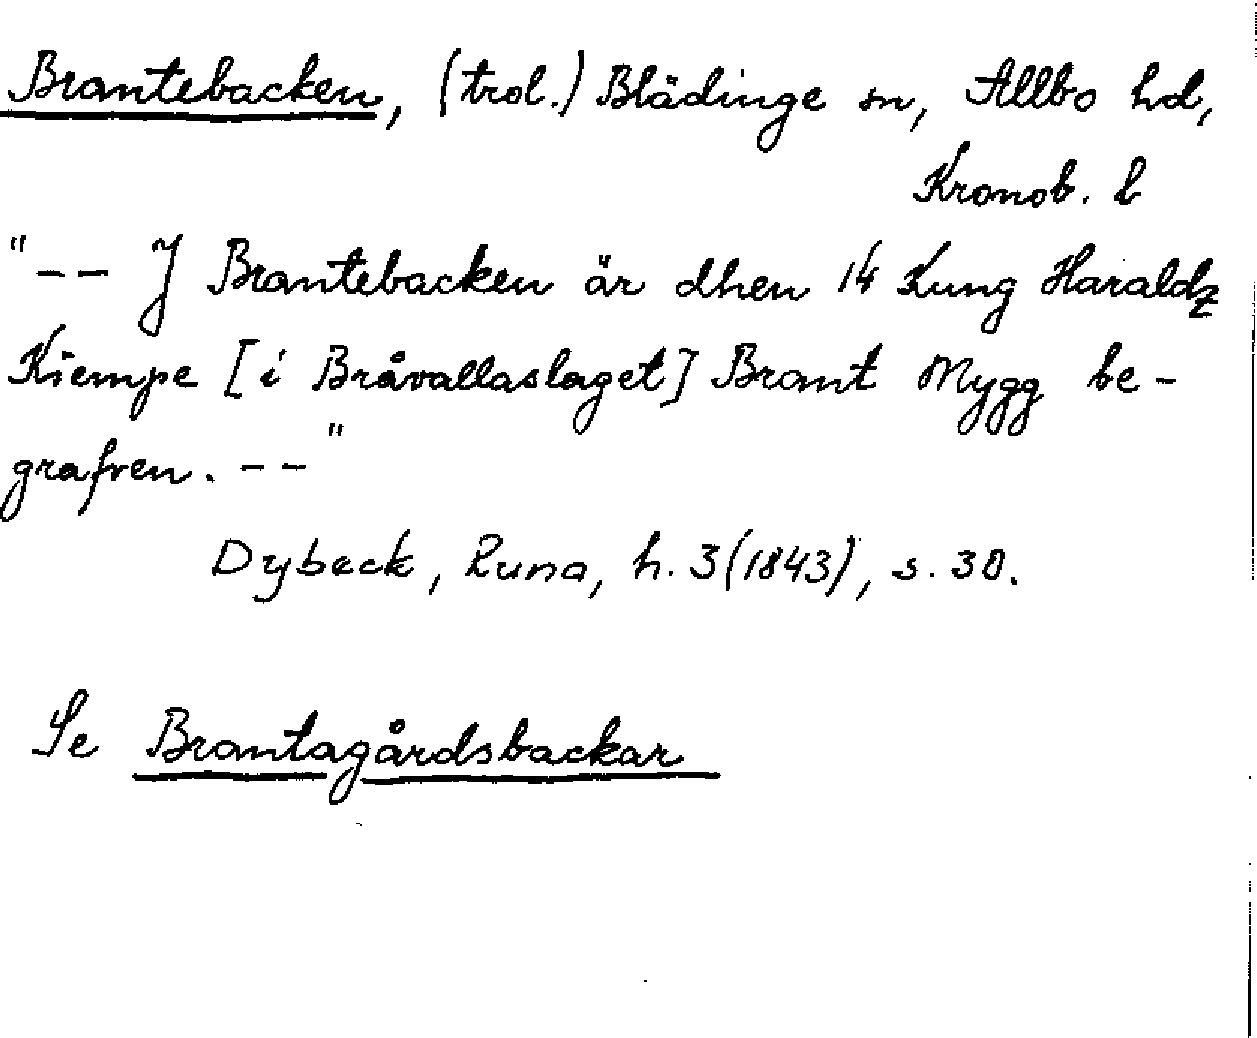 Brantebacken, (trol.) Blädinge sn, Allbo hd,
Kronob. l
"-- J Brantebacken är dhen 14 Kung Haraldz
Kiempe [i Bråvallaslaget] Brant Mygg be-
grafven. --"
Dybeck, Runa, h. 3 (1843), s. 30.
Se Brantagårdsbackar